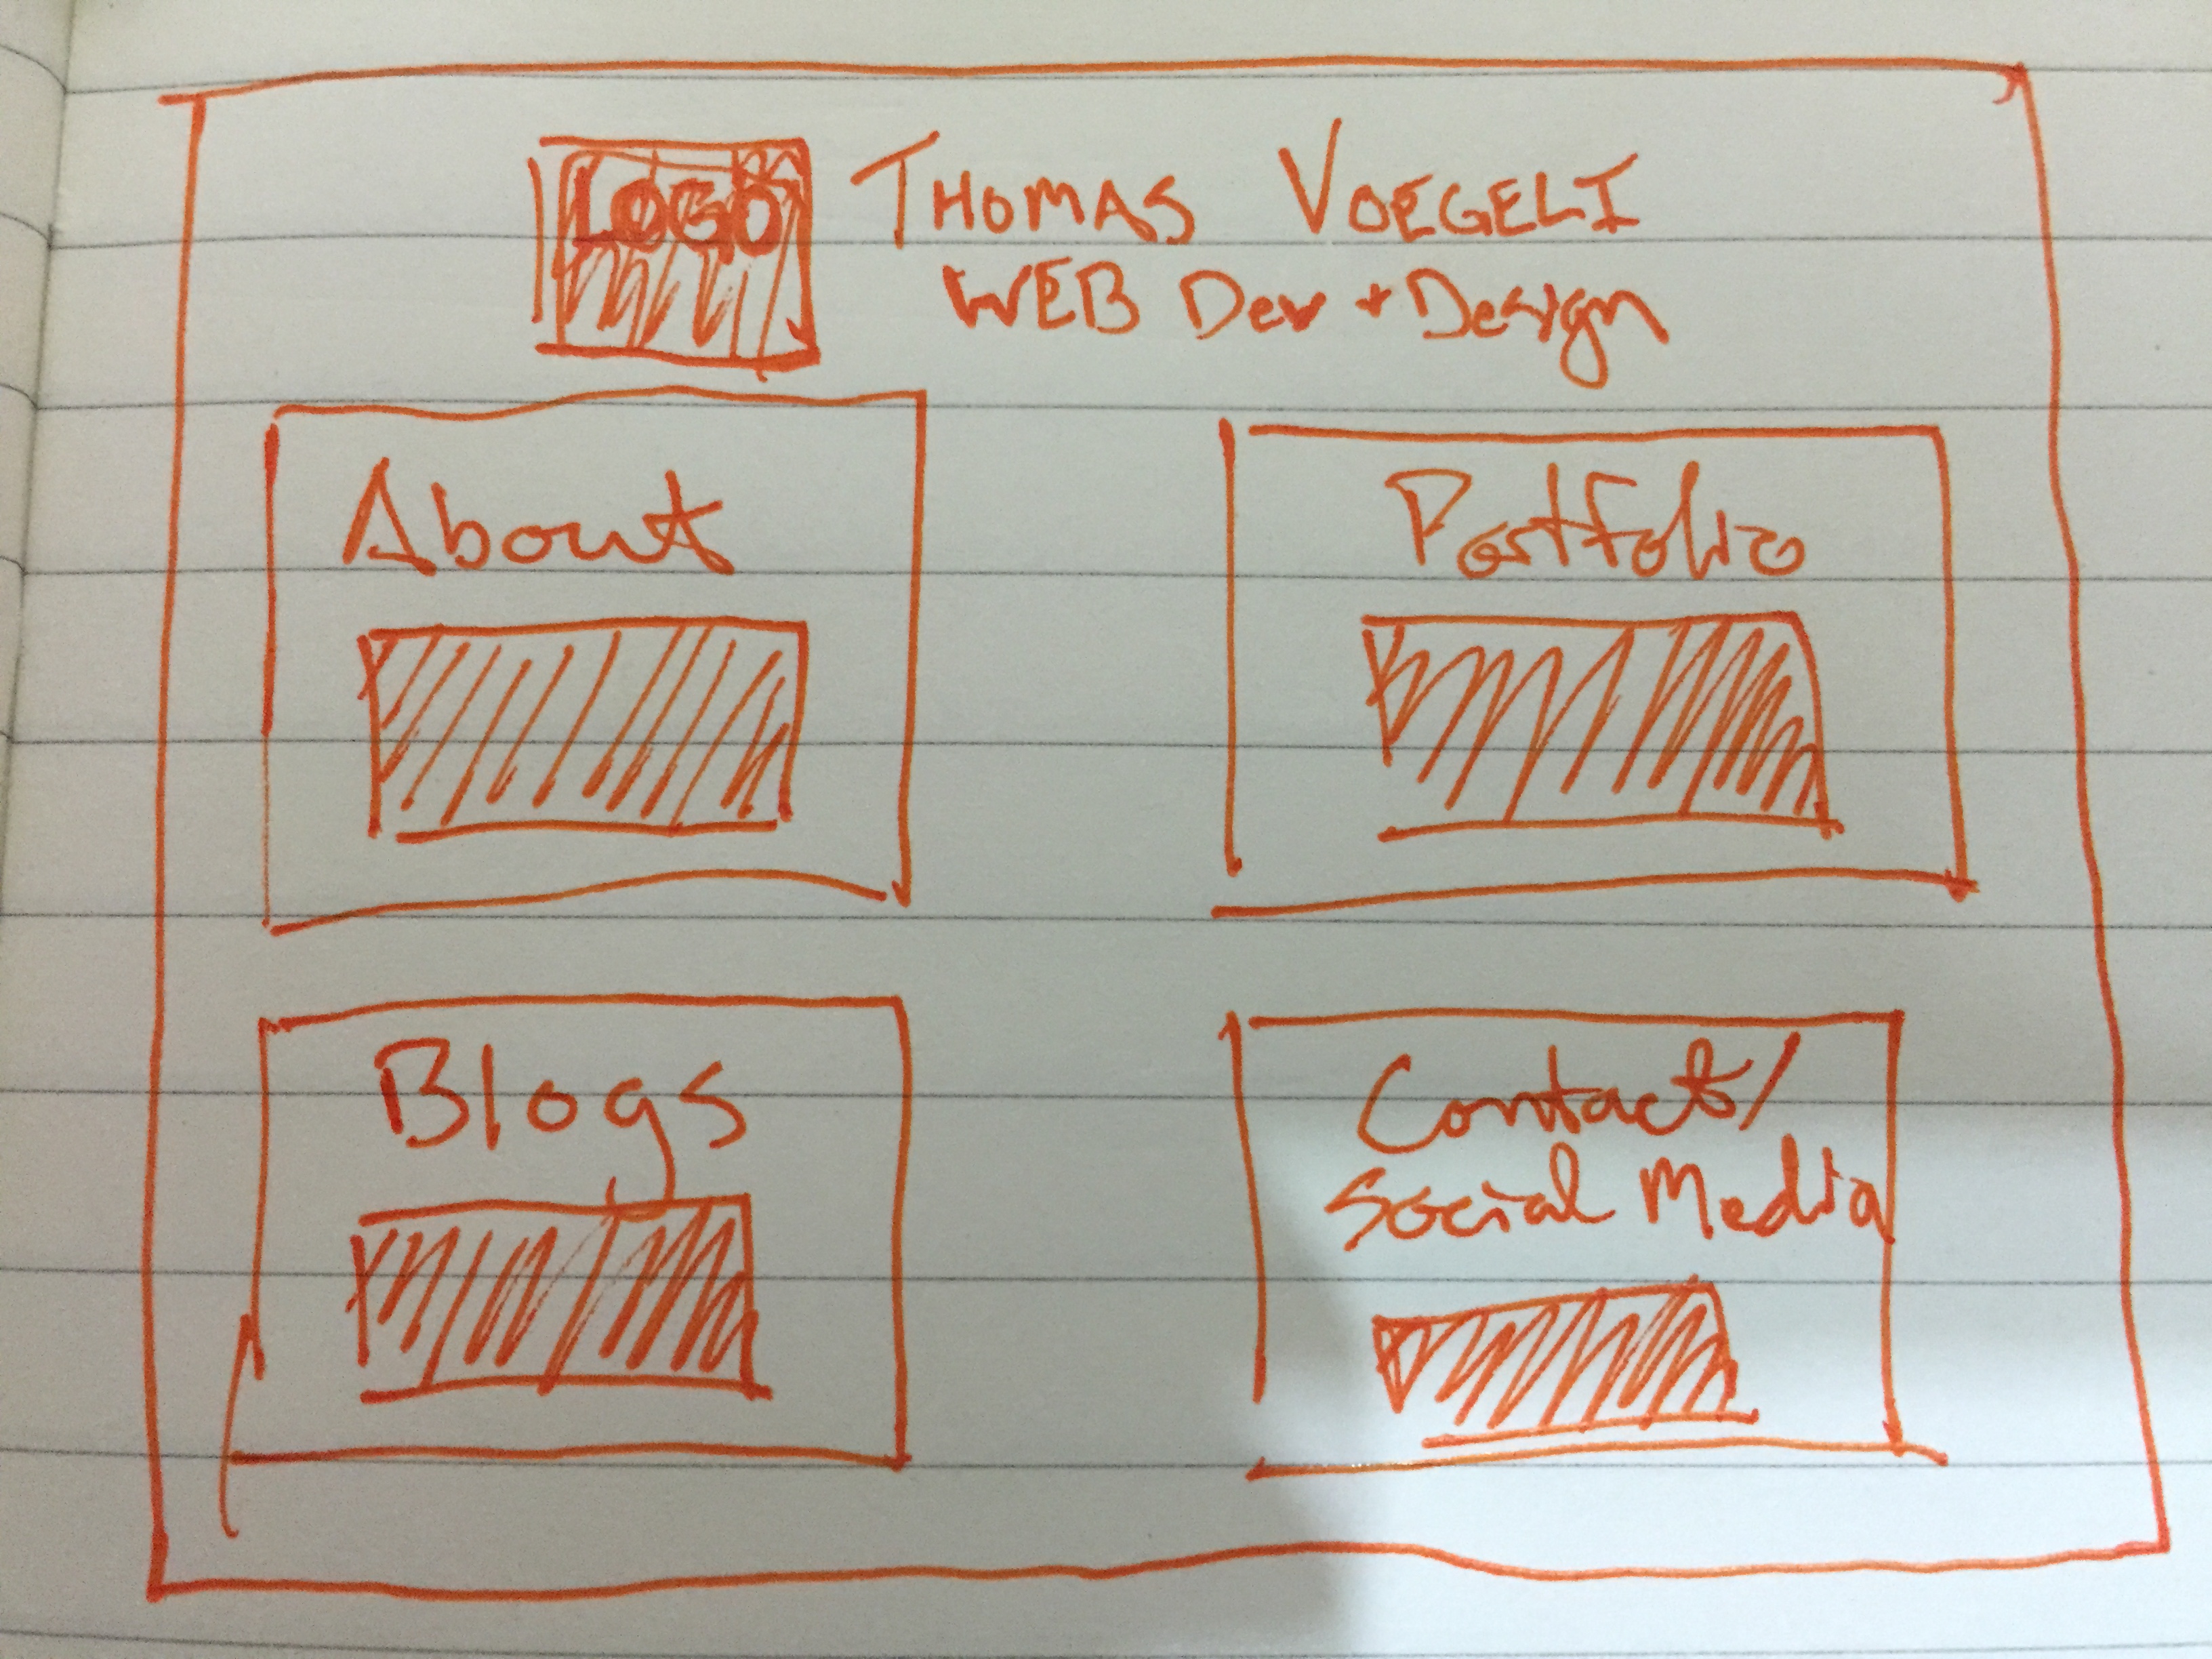 LOGO
THOMAS VOEGELI
WEB Dev + Design
About
Portfolio
Blogs
Contact/
Social Media